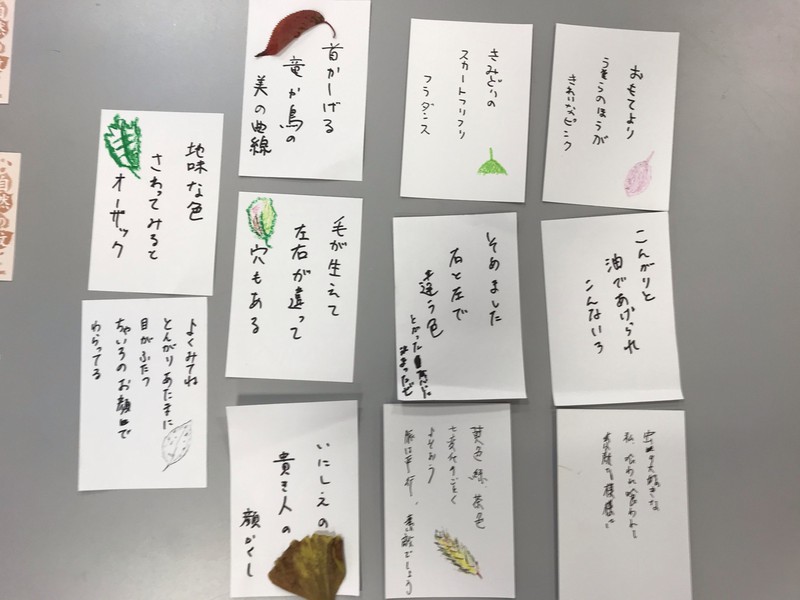 おもてより
うらのほうが
きれいなピンク
きみどりの
スカートフリフリ
フラダンス
首かしげる
竜か鳥の
美の曲線
地味な色
さわってみると
オーザック
こんがりと
油であげられ
こんないろ
そめました
右と左で
違う色
とかった
きまったぜ
毛が生えて
左右が違って
穴もある
よくみてね
とんがりあたまに
目がふたつ
ちゃいろのお顔で
わらってる
虫さん大好きな
私、喰われ喰われし
素敵な模様に
黄色緑茶色
よそおう
いにしえの
貴き人の
顔かくし